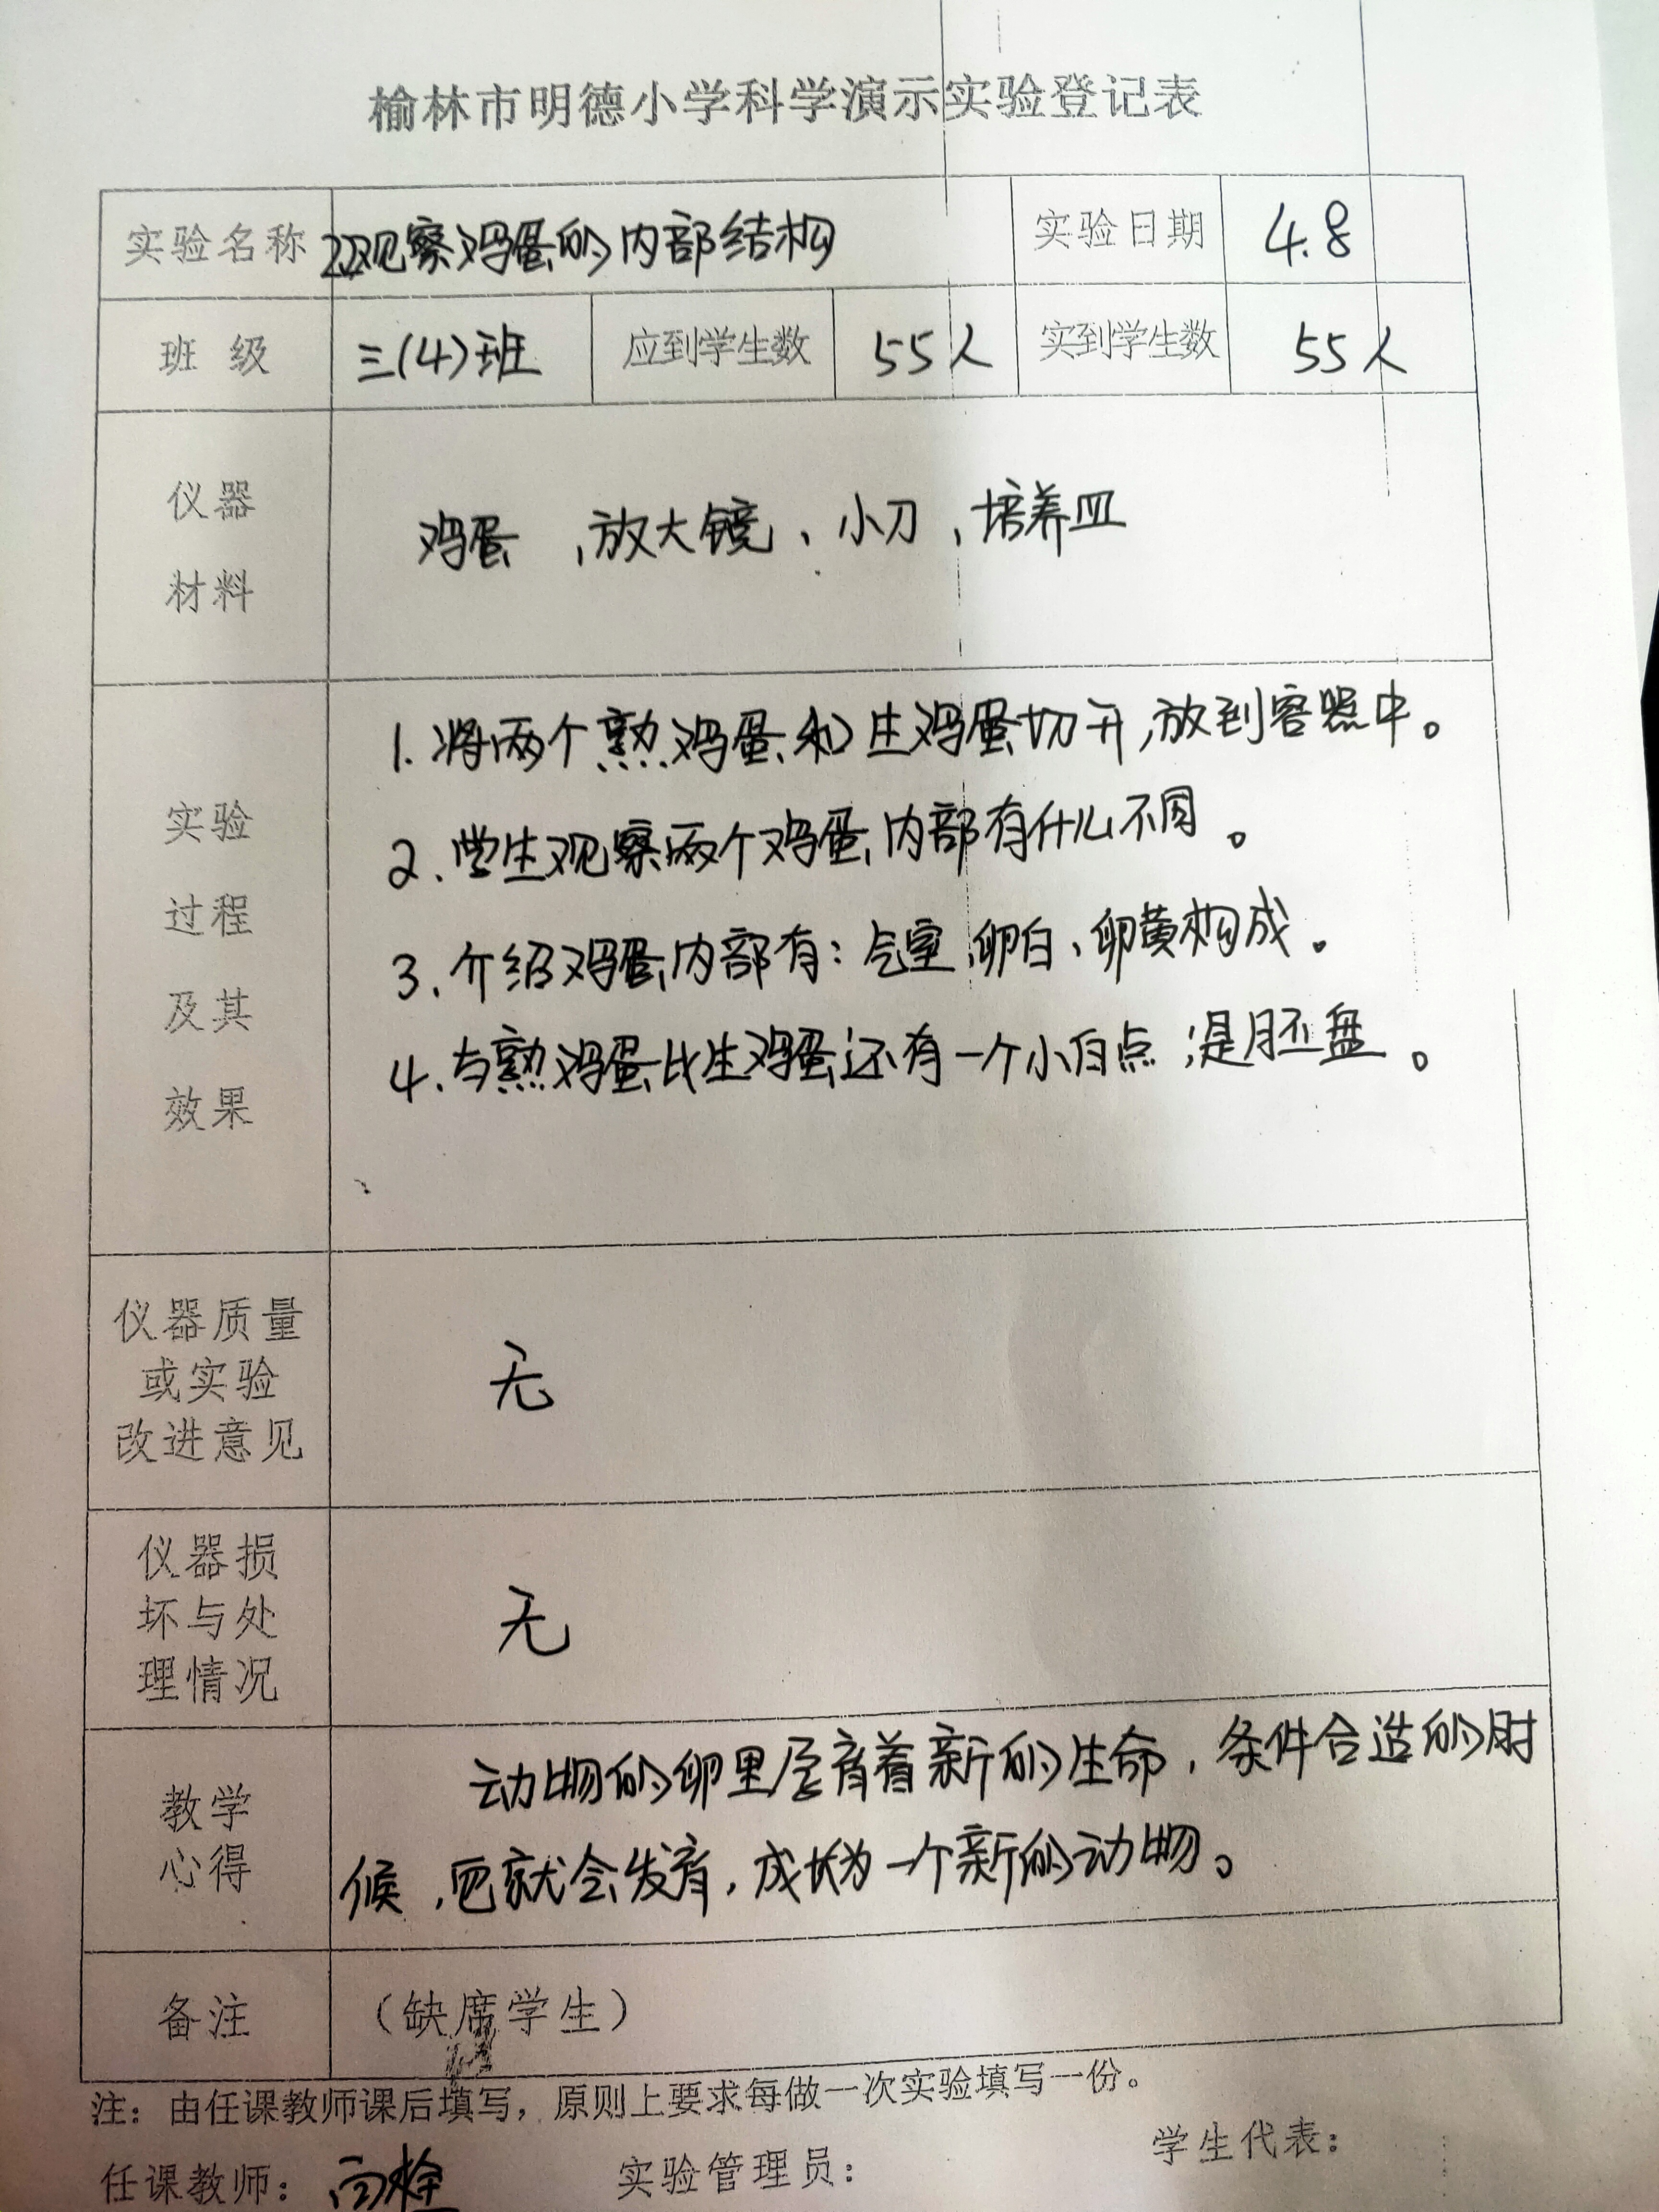 榆林市明德小学科学演示实验登记表
实验名称 22观察鸡蛋的内部结构 实验日期 4.8
班 级 三(4)班 应到学生数 55人 实到学生数 55人
仪器
材料
鸡蛋、放大镜、小刀、培养皿
实验
过程
及其
效果
1.将两个熟鸡蛋和生鸡蛋切开,放到容器中。
2.学生观察两个鸡蛋内部有什么不同。
3.介绍鸡蛋内部有:气室、卵白、卵黄构成。
4.与熟鸡蛋比生鸡蛋还有一个小白点,是胚盘。
仪器质量
或实验
改进意见
无
仪器损
坏与处
理情况
无
教学
心得
动物的卵里孕育着新的生命,条件合适的时
候,它就会发育,成长为一个新的动物。
备注 (缺席学生)
注:由任课教师课后填写,原则上要求每做一次实验填写一份。
任课教师: 实验管理员: 学生代表: